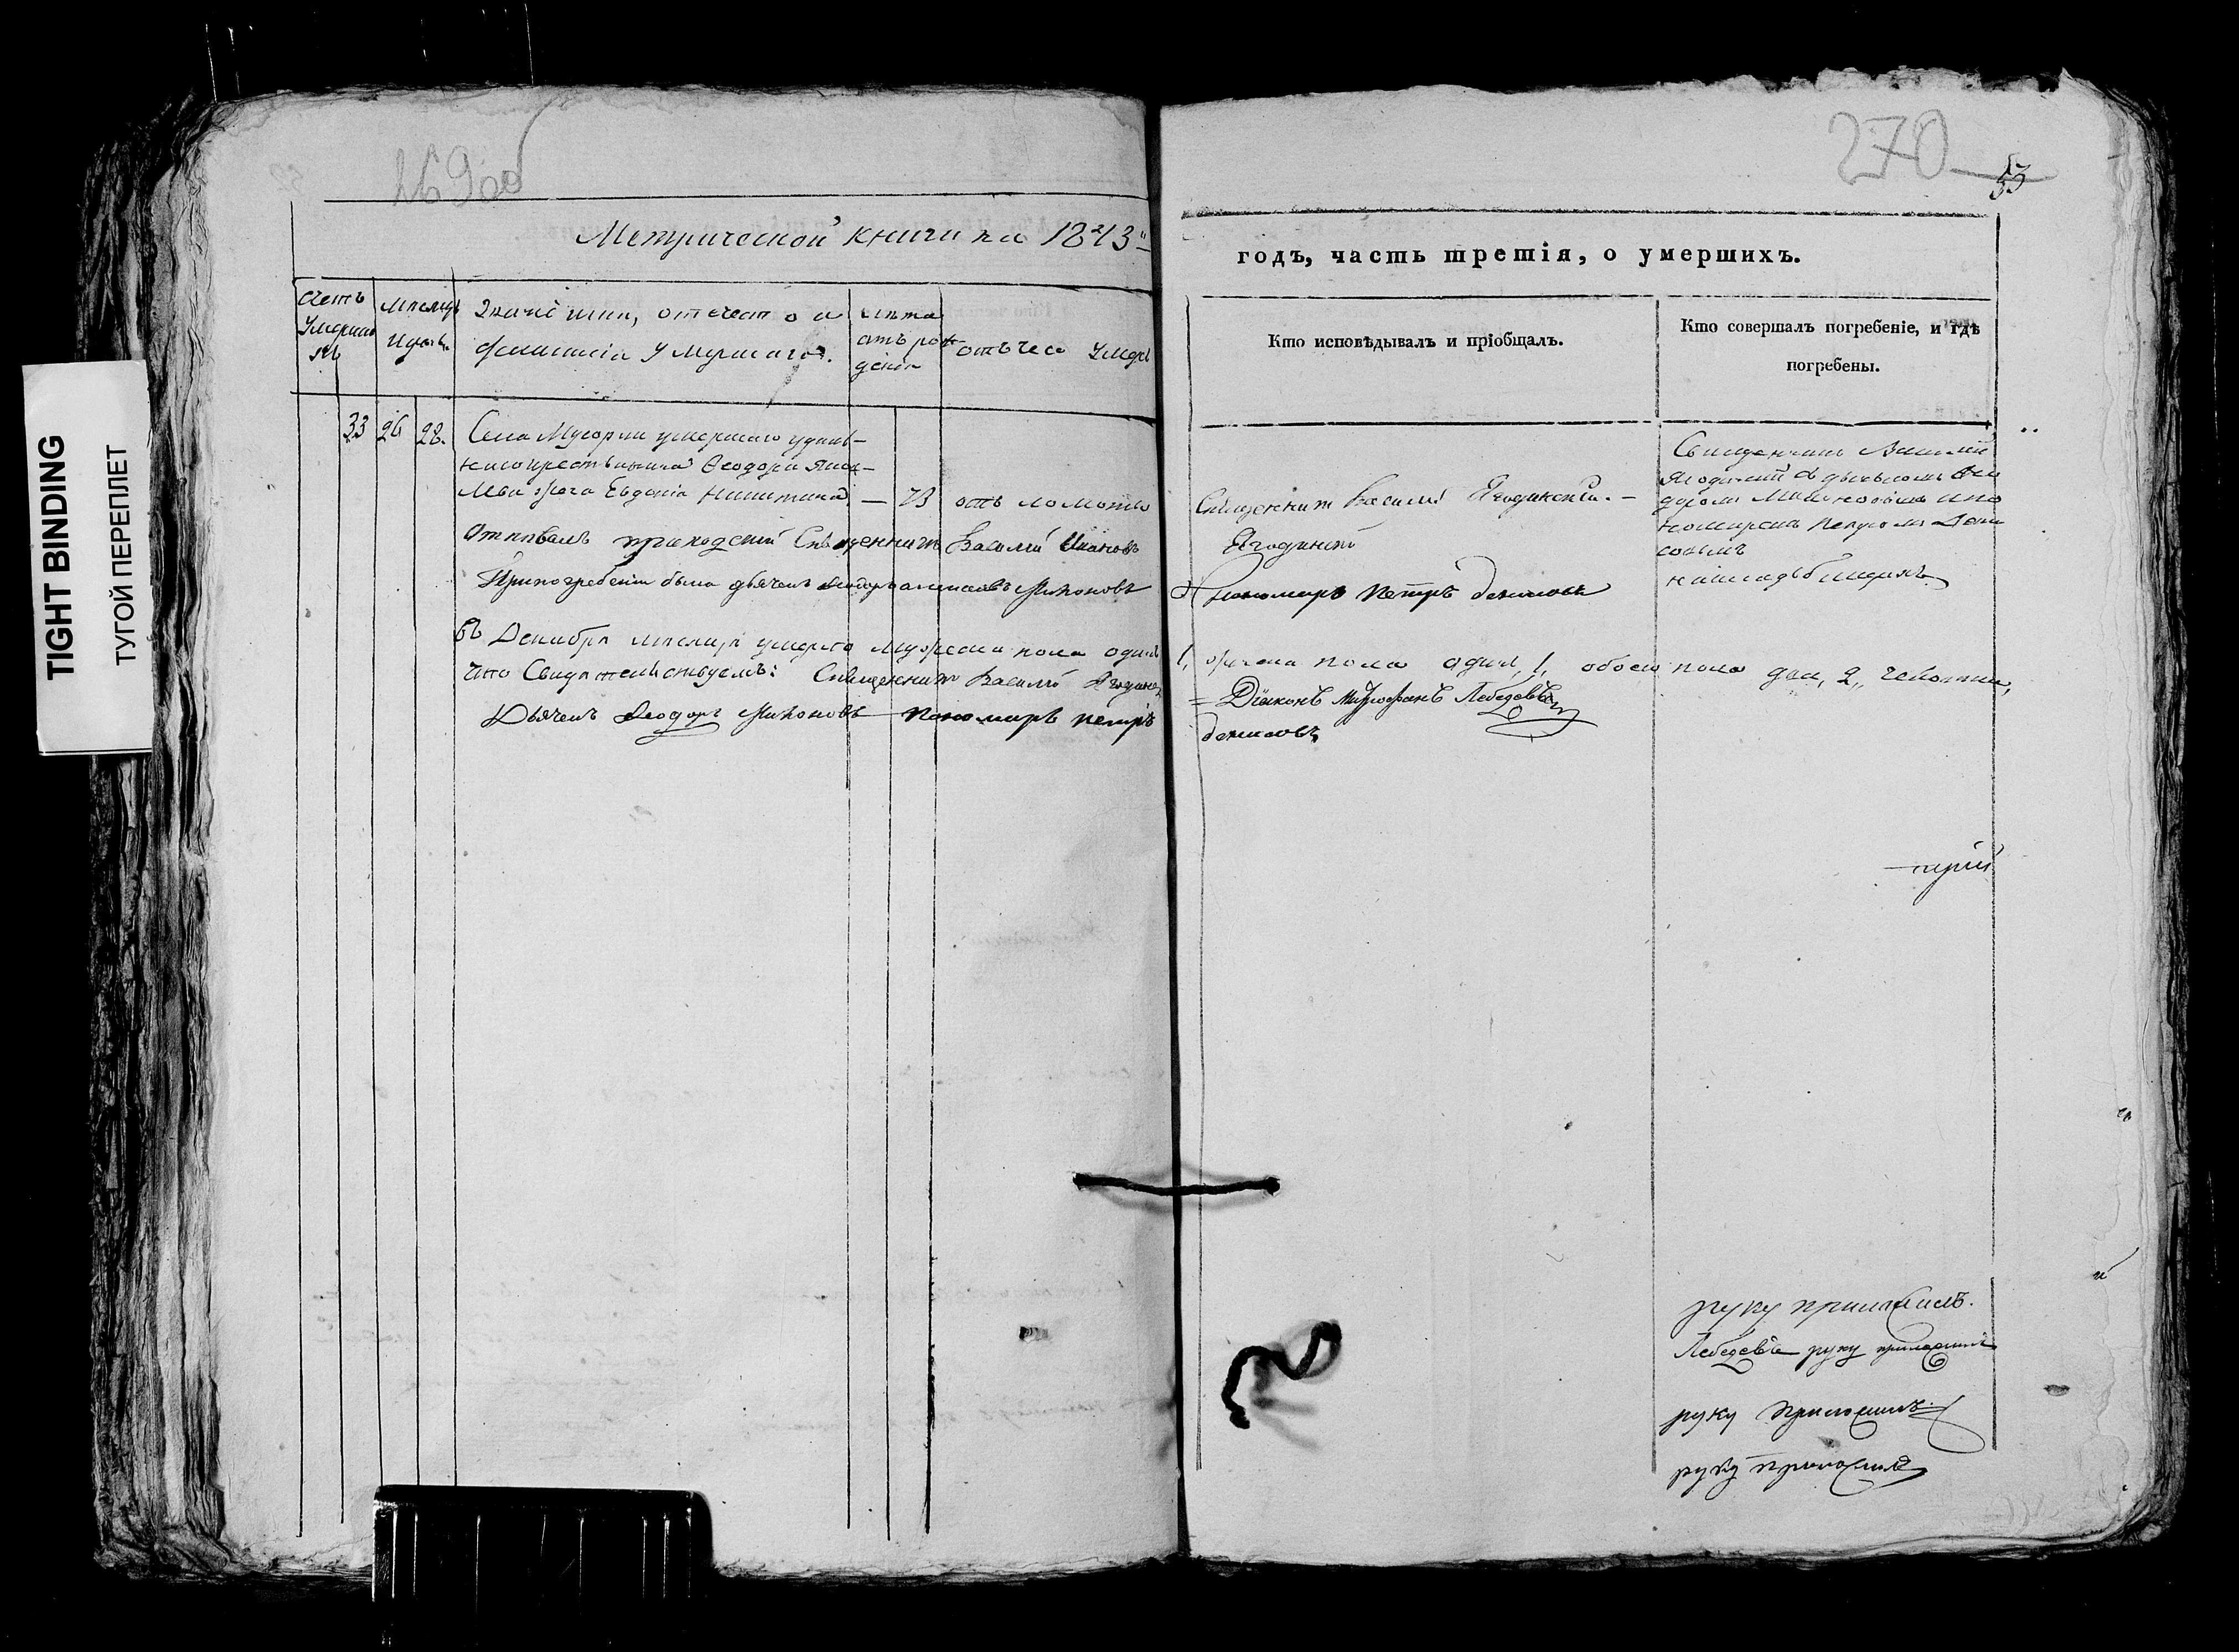 TIGHT BINDING
ТУГОЙ ПЕРЕПЛЕТ
269об
270
53
Метрической книги на 1843й
годъ, часть третія, о умершихъ.
Счетъ
Умерших
Мѣсяцъ
Званіе имя, отечество и
фамилія Умершаго.
Лѣта
отъ рож
денія
отъ чего Умеръ
Кто исповѣдывалъ и пріобщалъ.
Кто совершалъ погребеніе, и гдѣ
погребены.
33 26 28. Села умершаго удѣль-
наго крестьянина Ѳеодора
жена Евдокія Никитина — 73 отъ ломоты
Священник Василій Ягодинскій. —
Священникъ Василій
Ягодинскій съ дьячкомъ Ѳео
доромъ Михоновымъ и по
номаремъ Петромъ Дени
совымъ
на кладбищѣ
Отпѣвалъ приходскій Священникъ Василій Ивановъ
Ягодинскій
При погребеніи были дьячекъ Ѳеодоръ Михоновъ
Пономарь Петръ Денисовъ
Въ Декабрѣ мѣсяцѣ умерло мужеска пола одинъ
1, женска пола одна, 1, обоего пола два, 2, человѣка,
Что Свидѣтельствуемъ: Священникъ Василій Ягодинск
= Діаконъ Митрофанъ Лебедевъ
Дьячекъ Ѳеодоръ Михоновъ — Пономарь Петръ
Денисовъ
руку приложилъ.
Лебедевъ руку приложилъ
руку приложилъ
руку приложилъ